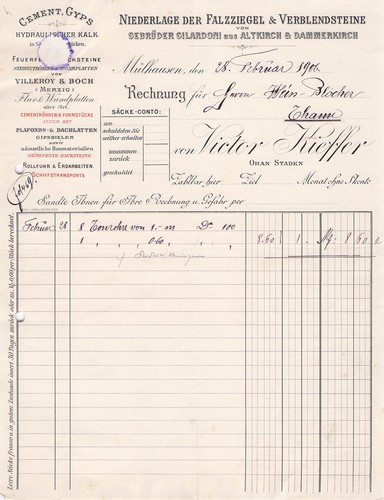 CEMENT, GYPS
HYDRAULISCHER KALK
in Säcken.
FEUERFESTE BACKSTEINE
VON
VILLEROY & BOCH
(MERZIG)
Flur- & Wandplatten
aller Art.
CEMENTRÖHREN & FORMSTÜCKE
JEDER ART
PLAFONDS- & DACHLATTEN
GIPSDIELEN
sowie
sämmtliche Baumaterialien
ROLLFUHR & ERDARBEITEN.
SCHIFFSTRANSPORTE
SÄCKE-CONTO:
am
schuldeten Sie
weiter erhalten
zusammen
zurück
geschuldet
NIEDERLAGE DER FALZZIEGEL & VERBLENDSTEINE
VON
GEBRÜDER GILARDONI AUS ALTKIRCH & DAMMERKIRCH
Mülhausen, den 28. Februar 1906
Rechnung für Herrn
Thann
von Victor Kieffer
ORAN STADEN
Zahlbar hier Ziel Monat ohne Skonto
Sandte Ihnen für Ihre Rechnung u. Gefahr per
Februar 28 8 von 1.- m D. 100
1 " 0.60 8.60 1 - M. 8 60
Leere Säcke franco u. in gutem Zustande innert 30 Tagen zurück oder zu M. 0,60 per Stück berechnet.